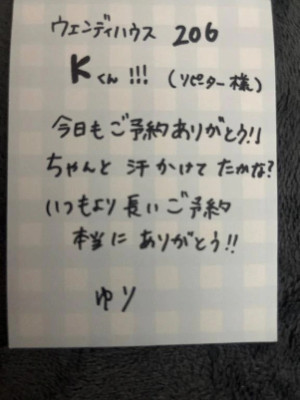 ウェンディハウス 206
Kくん!!! (リピター様)
今日もご予約ありがとう!!
ちゃんと汗かけてたかな?
いつもより長いご予約
本当にありがとう!!
ゆり